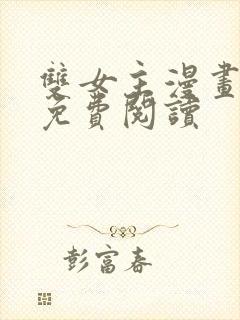 雙女主漫畫
免費閱讀
彭富春